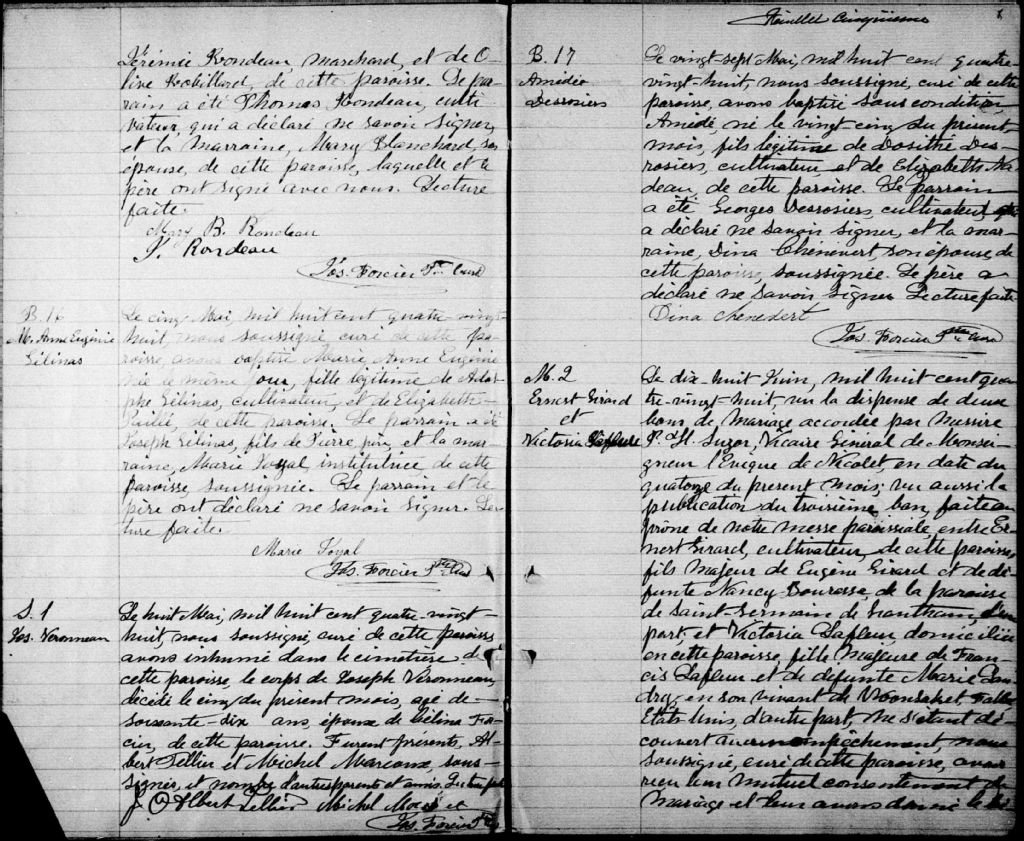 Jérémie Rondeau marchand, et de O-
live Robillard, de cette paroisse. Le par-
rain a été Thomas Rondeau, culti-
vateur, qui a déclaré ne savoir signer,
et la Marraine, Mary Blanchard, son
épouse, de cette paroisse, laquelle et le
père ont signé avec nous. Lecture
faite.
Mary B. Rondeau
J. Rondeau
Jos. Forcier Ptre Curé
B. 16
M. Anne Eugénie
Gélinas
Le cinq Mai, mil huit cent quatre-vingt-
huit, nous soussigné curé de cette pa-
roisse, avons baptisé Marie Anne Eugénie
née le même jour, fille légitime de Adol-
phe Gélinas, cultivateur, et de Elizabeth
de cette paroisse. Le parrain a été
Joseph Gélinas, fils de Pierre, et la mar-
raine, Marie Joyal, institutrice de cette
paroisse, soussignée. Le parrain et le
père ont déclaré ne savoir signer. Lec-
ture faite.
Marie Joyal
Jos. Forcier Ptre Curé
S. 1
Jos. Véronneau
Le huit Mai, mil huit cent quatre-vingt-
huit, nous soussigné, curé de cette paroisse
avons inhumé dans le cimetière de
cette paroisse, le corps de Joseph Véronneau,
décédé le cinq du présent mois, agé de
soixante-dix ans, époux de Célina For-
cier, de cette paroisse. Furent présents, Al-
bert Tellier et Michel Marcoux, sous-
signés, et nombre d'autres parents et amis. Lecture faite
Albert Tellier Michel
Jos. Forcier Ptre
Feuillet Cinquième
B. 17
Amédée
Desrosiers
Le vingt-sept Mai, mil huit cent quatre-
vingt-huit, nous soussigné, curé de cette
paroisse, avons baptisé sous condition,
Amédé, né le vingt-cinq du présent
mois, fils légitime de Dosithé Des-
rosiers, cultivateur et de Elizabeth Na-
deau, de cette paroisse. Le parrain
a été Georges Desrosiers, cultivateur, qui
a déclaré ne savoir signer, et la mar-
raine, Dina Chênevert, son épouse, de
cette paroisse, soussignée. Le père a
déclaré ne savoir signer Lecture faite
Dina Chenevert
Jos. Forcier Ptre Curé
M. 2
Ernest Girard
et
Victoria Lafleur
Le dix-huit Juin, mil huit cent qua-
tre-vingt-huit, vu la dispense de deux
bans de Mariage accordée par Messire
P. H. Suzor, Vicaire Général de Monsei-
gneur l'Evêque de Nicolet, en date du
quatorze du présent mois; vu aussi la
publication du troisième ban, faite au
prône de notre messe paroissiale, entre Er-
nest Girard, cultivateur, de cette paroisse,
fils Majeur de Eugène Girard et de dé-
funte Nancy Bourassa, de la paroisse
de Saint-Germain de Grantham, d'une
part; et Victoria Lafleur, domiciliée
en cette paroisse, fille Majeure de Fran-
cis Lafleur et de défunte Marie Lan-
dry, en son vivant de Woonsocket Falls
Etats-Unis, d'autre part, ne s'étant dé-
couvert aucun empêchement, nous
soussigné, curé de cette paroisse, avons
reçu leur mutuel consentement de
Mariage et leur avons donné la bé-